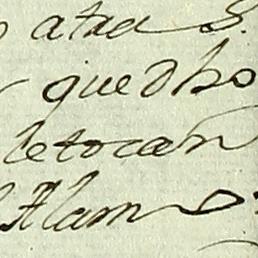 atras.
que dho
le tocan
Alam